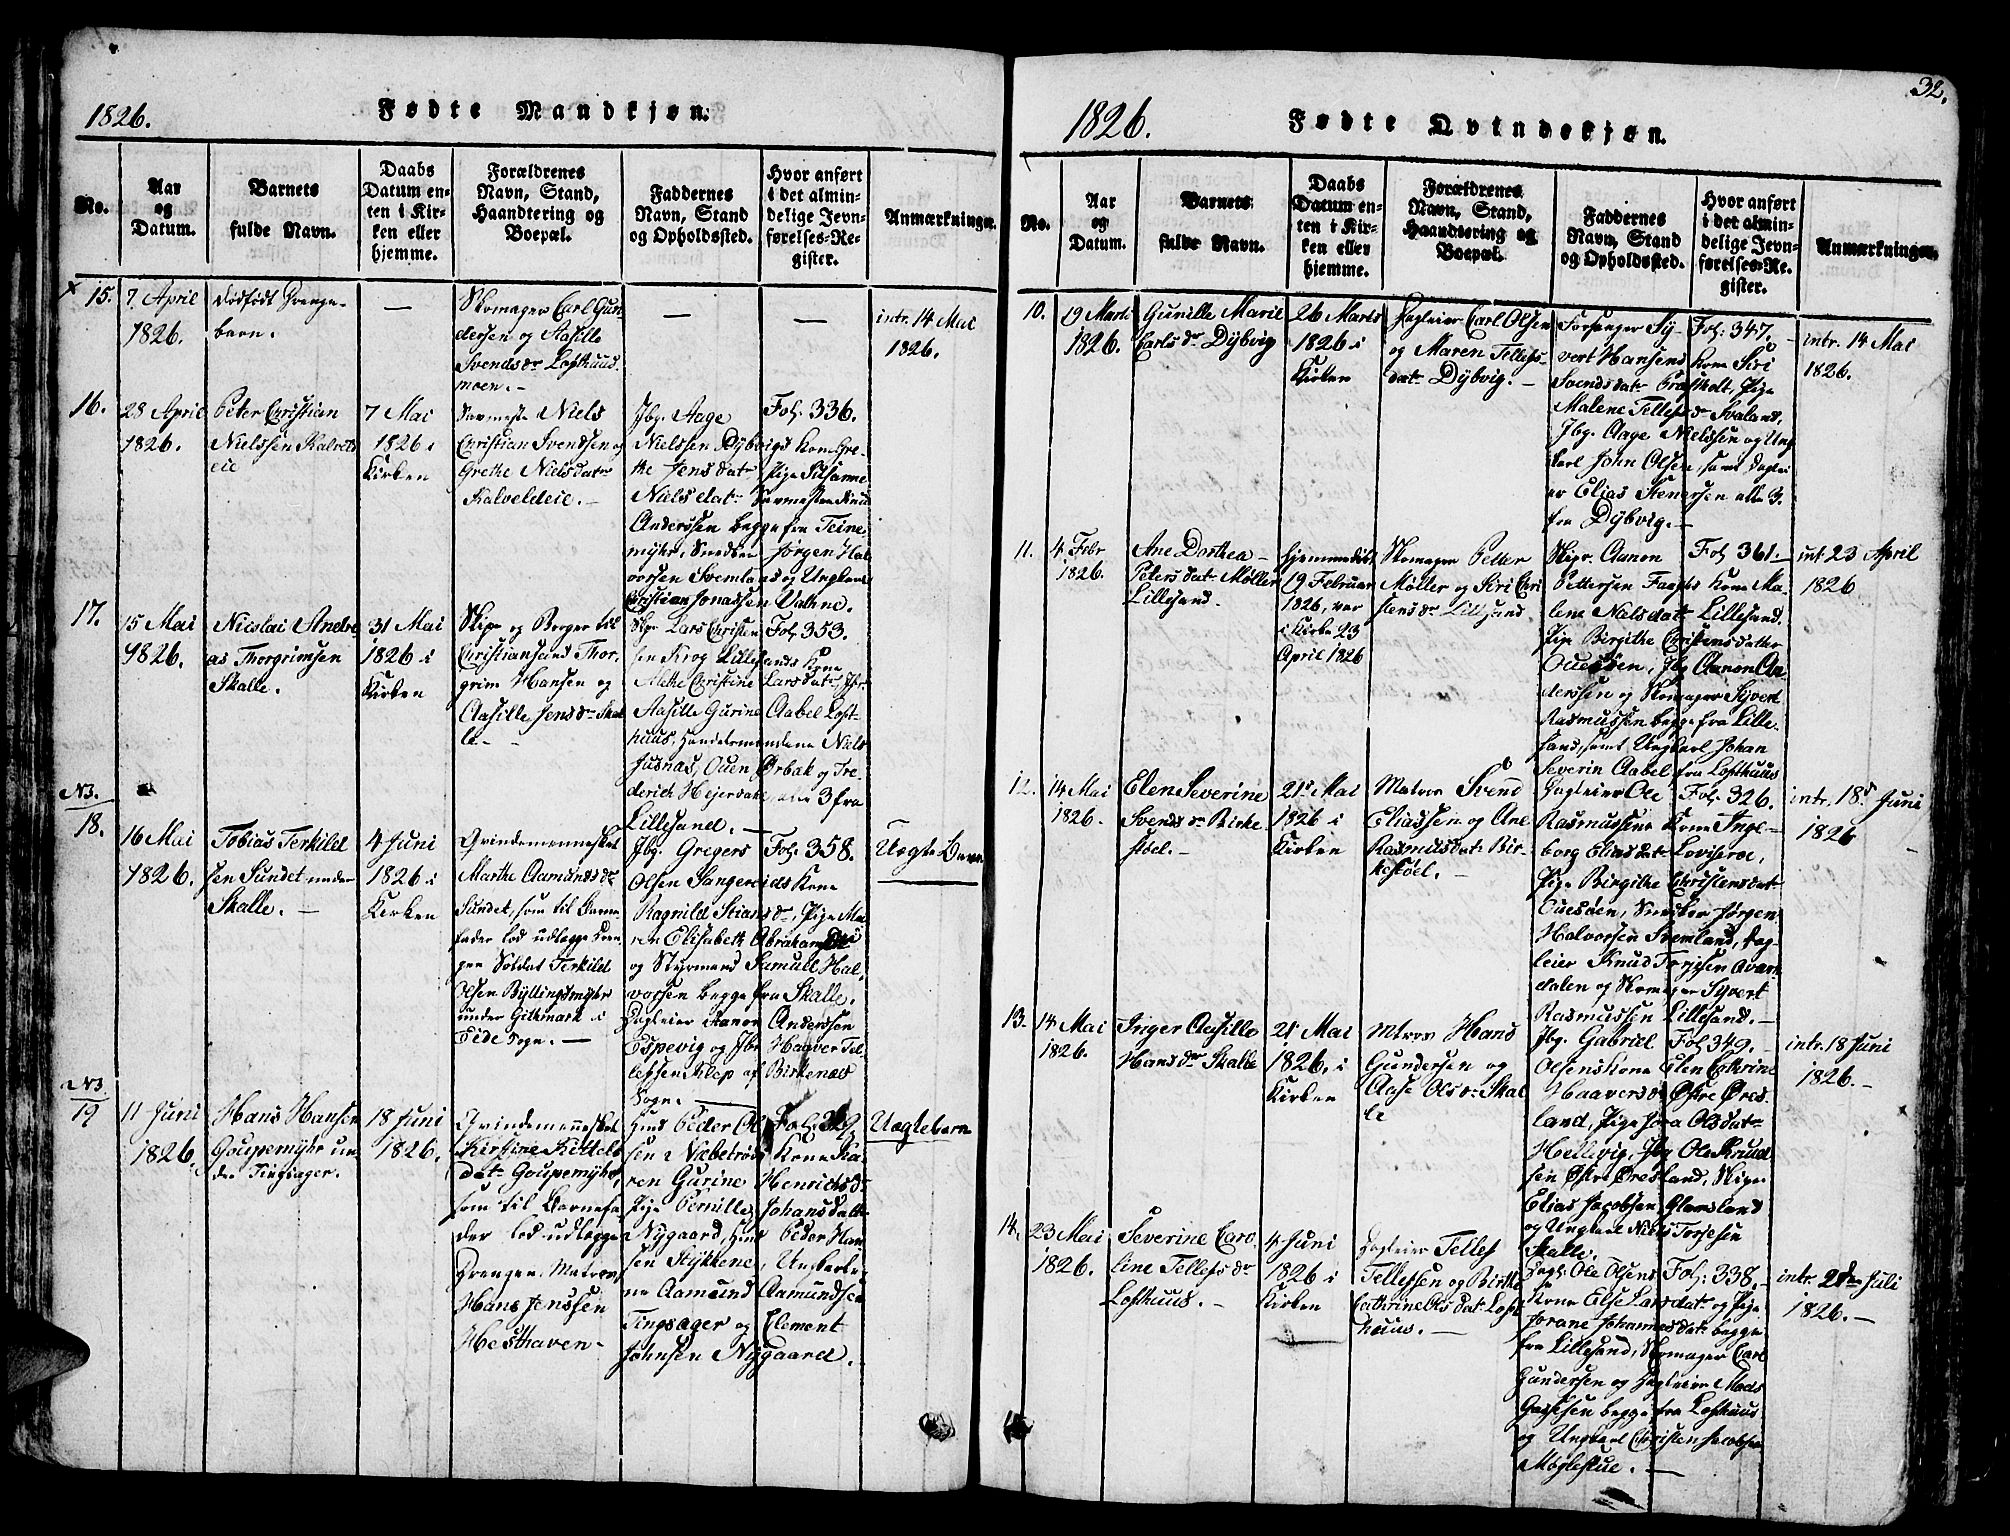 1826.
Fødte Mandkjøn.
No.
Aar
og
Datum.
Barnets
fulde Navn.
Daabs
Datum en-
ten i Kir-
ken eller
hjemme.
Forældrenes
Navn, Stand,
Haandtering og
Boepæl.
Faddernes
Navn, Stand
og Opholdssted.
Hvor anført
i det almin-
delige Jevn-
førelses-Re-
gister.
Anmærkninger.
15.
7 April
1826.
dødfødt Drenge-
barn.
—
Skomager Carl Gun-
dersen og Aasille
Svendsdr Lofthuus-
moen. -
—
—
intr. 14 Mai
1826.
16.
28 April
1826.
Peter Christian
Nielssen Kalveld
eie
7 Mai
1826 i
Kirken
Niels
Christian Svendsen og
Grethe Nielsdatr
Kalveldeie. -
Jbg. Aage
Nielssen Dybvigs Kone Gre-
the Jensdatr Pige Susanne
Nielsdatr Knud
Anderssen begge fra Teine-
myhr, Snedker Jørgen Hal-
vorsen Svemland og Ungkarl
Christian Jonassen Vathne.
Fol. 336.
17.
15 Mai
1826.
Nicolai Andre
as Thorgrimsen
Skalle.
31 Mai
1826 i
Kirken
Skipr og Borger til
Christiansand Thor-
grim Hansen og
Aasille Jensdr Skal
le. -
Skpr Lars Christen
sen Krog Lillesands Kone
Methe Christine Larsdatr, Jfr.
Aasille Gurine Aabel Loft-
huus, Handelsmændene Niels
Jusnæs, Ouen Ørbæk og Fre-
derich alle 3 fra
Lillesand. —
Fol. 353.
N3.
18.
16 Mai
1826.
Tobias Terkild
sen Sundet under
Skalle. —
4 Juni
1826 i
Kirken
Qvindemennesket
Marthe Aamundsdr
Sundet, som til Barne-
fader lod udlægge Dren-
gen Soldat Terkild
Olsen Byllingsmyhr
under Gitmark i
Eide Sogn. —
Jbg. Gregers
Olsen Sangereids Kone
Ragnild Stiansdr, Pige Ma-
ren Elisabeth Abrahamsdr
og Styrmand Samuel Hal-
vorsen begge fra Skalle.
Dagleier Aanon Anderssen
Espevig og Jbr Haaver Tel-
lefsen Klep af Birkenæs
Sogn. —
Fol. 358.
Uægte Barn
N3
19
11 Juni
1826.
Hans Hansen
Goupemyhr un-
der Tingsager.
18 Juni
1826.
Qvindemennesket
Kirstine Kittels
datr Goupemyhr,
som til Barnefa-
der lod udlægge
Drengen Matros
Hans Jenssen
Hesthaven-
Huus Peder Ol
sen Næbetrøis Kone Ka-
ren Gurine Henrichsdr
Pige Pernille Johansdatr
Nygaard, Huus Peder Han
sen Stykkene, Ungkarle-
ne Aamund Aamundsen
Tingsager og Clement
Johnsen Nygaard.
Uægtebarn
32.
1826.
Fødte Qvindekjøn.
No.
Aar
og
Datum.
Barnets
fulde Navn.
Daabs
Datum en-
ten i Kir-
ken eller
hjemme.
Forældrenes
Navn, Stand,
Haandtering og
Boepæl.
Faddernes
Navn, Stand
og Opholdssted.
Hvor anført
i det almin-
delige Jevn-
førelses-Re-
gister.
Anmærkninger.
10.
19 Marts
1826.
Gunille Marie
Carlsdr Dybvig
26 Marts
1826 i
Kirken
Dagleier Carl Olsen
og Maren Tellefs-
datr Dybvig. —
Forsanger Sy-
vert Hansens Kone Siri
Svendsdatr Præstholt, Pige
Malene Tellefsdr Svaland,
Jbg. Aage Nielssen og Ung
karl John Olsen, samt Daglei
er Elias Stenersen alle 3
fra Dybvig. —
Fol. 347.
intr. 14 Mai
1826.
11.
4 Febr
1826.
Ane Dorthea -
Petersdatr Møller
Lillesand.
Hjemmedøbt
19 Februar
1826, var
i Kirke 23
April 1826
Skomager Petter
Møller og Siri Chri
stensdr Lillesand
Skipr. Aanon
Pettersen Kone Ma-
lene Nielsdatr Lillesand.
Pige Birgithe Christensdatter
Ouesøen, Jbg Aanon An-
derssen og Skomager Syvert
Rasmussen begge fra Lille-
sand, samt Ungkarl Johan
Severin Aabel fra Lofthuus
Fol. 361.
int. 23 April
1826
12.
14 Mai
1826.
Elen Severine
Svendsdr Birke
støel. -
21de Mai
1826 i
Kirken
Matros Svend
Eliassen og Ane
Rasmusdatr Bir-
kestøel. -
Dagleier Ole
Rasmussens Kone Inge-
borg Eliasdatr Loviseroe,
Pige Birgithe Christensdatr
Ouesøen, Snedker Jørgen
Halvorssen Svemland, Dag-
leier Knud Terjesen
dalen og Skomager Syvert
Rasmussen Lillesand. —
Fol. 326.
intr. 18. Juni
1826
13.
14 Mai
1826.
Inger Aasille
Hansdr Skalle
21 Mai
1826, i
Kirken
Matros Hans
Gundersen og
Aase Olsdr Skal
le
Jbg. Gabriel
Olsens Kone Elen Cathrine
Haaversdr Østre Øres-
land, Pige Jora Olsdatr
Hellevig, Jbg Ole Knud
sen Østre Øresland, Skipr
Elias Jacobsen Glamsland
og Ungkarl Niels Torjesen
Skalle.
Fol. 349.
intr. 18 Juni
1826. -
14.
23 Mai
1826.
Severine Caro
line Tellefsdr
Lofthuus. -
4 Juni
1826 i
Kirken
Dagleier Tellef
Tellefsen og Birthe
Cathrine Olsdatr Loft
huus. —
Dagl. Ole Olsens
Kone Else Larsdatr og Pige
Jorane Johannesdatr begge
fra Lillesand, Skomager Carl
Gundersen og Dagleier Mads
begge fra Lofthuus
og Ungkarl Christen Jacobsen
Møglestue. —
Fol. 338.
intr. 2den Juli
1826. —
15